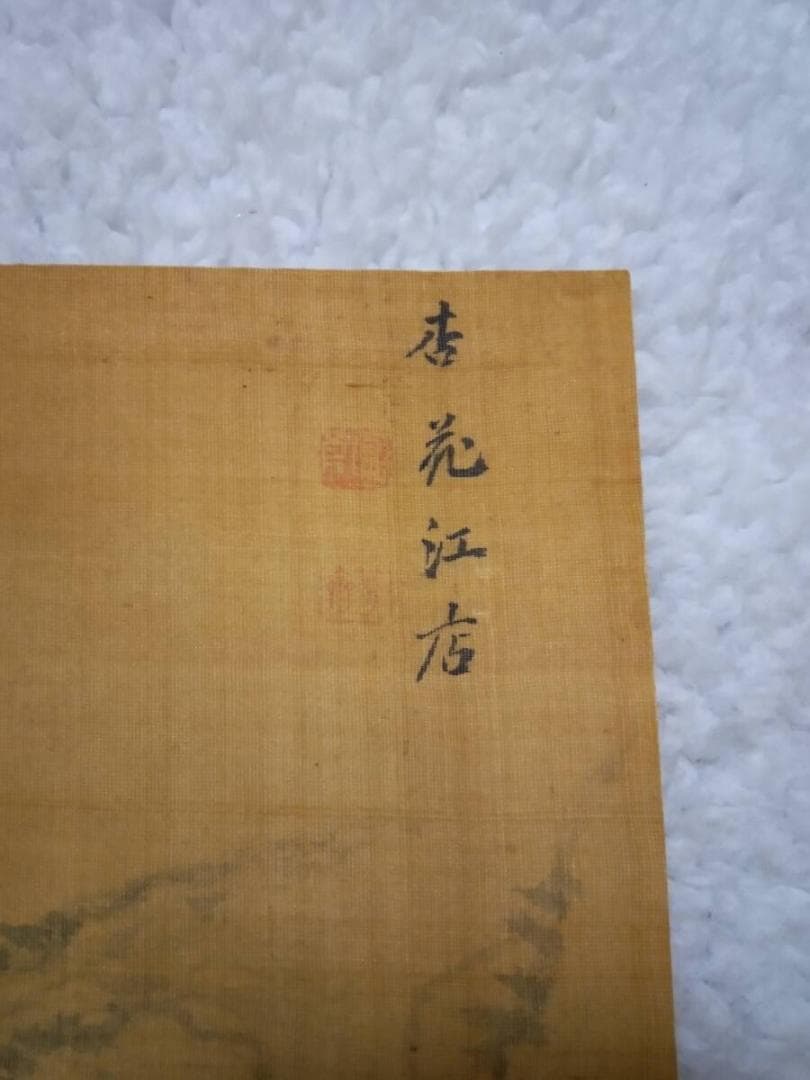 杏花江店